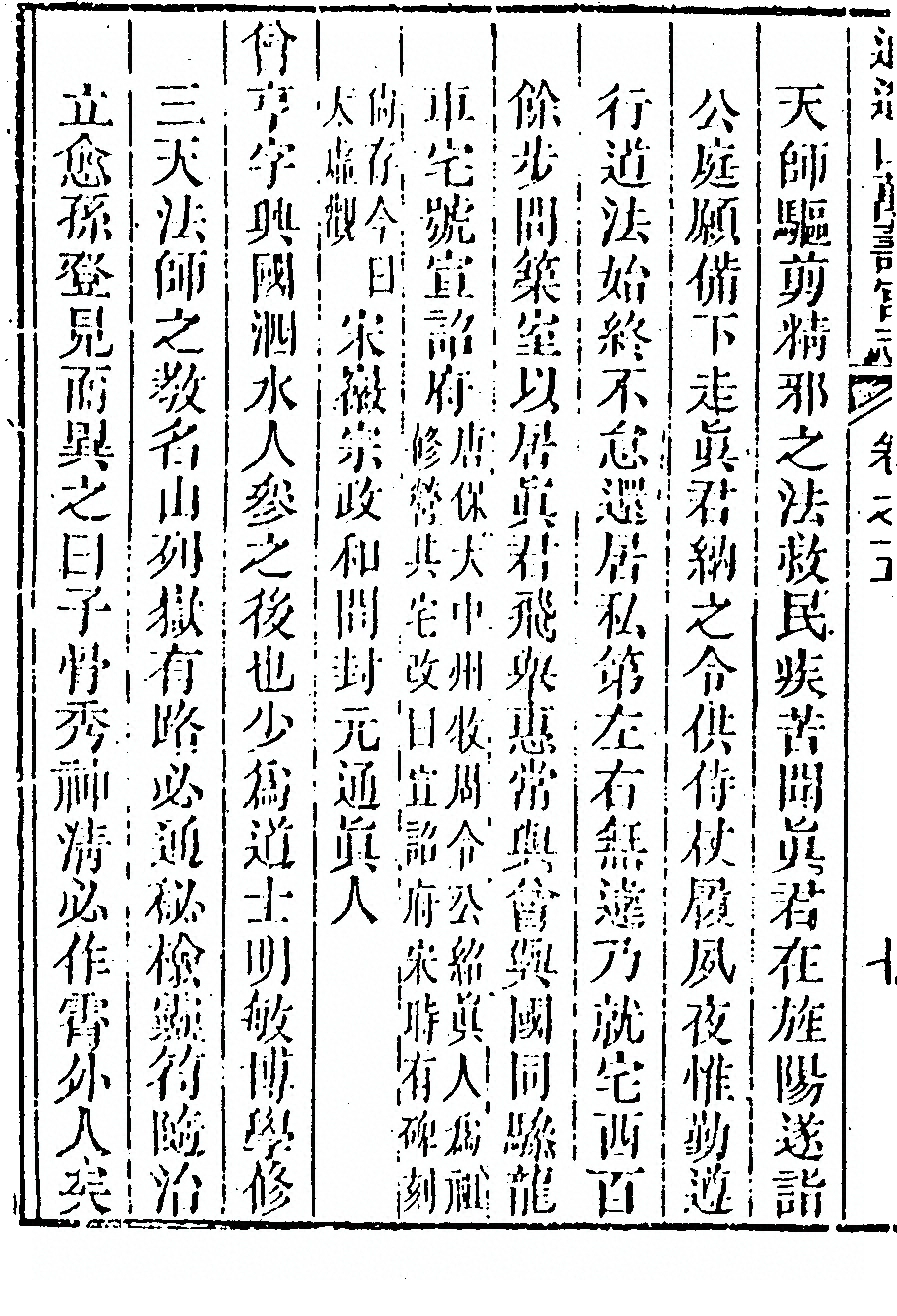 逍遙山萬壽宮志　卷之五　十
天師驅剪精邪之法救民疾苦聞眞君在旌陽遂詣
公庭願備下走眞君納之令供侍杖履夙夜惟勤遵
行道法始終不怠還居私第左右無違乃就宅西百
餘步間築室以居眞君飛舉惠常與曾興國同驂龍
車宅號宣詔府唐保大中州牧周令公紹眞人爲祖
修營其宅改曰宣詔府宋時有碑刻
尚存今曰
太虛觀宋徽宗政和間封元通眞人
曾亨字興國泗水人參之後也少爲道士明敏博學修
三天法師之敎名山列嶽有路必通秘檢顯符隨治
立愈孫登見而異之曰子骨秀神清必作霄外人矣